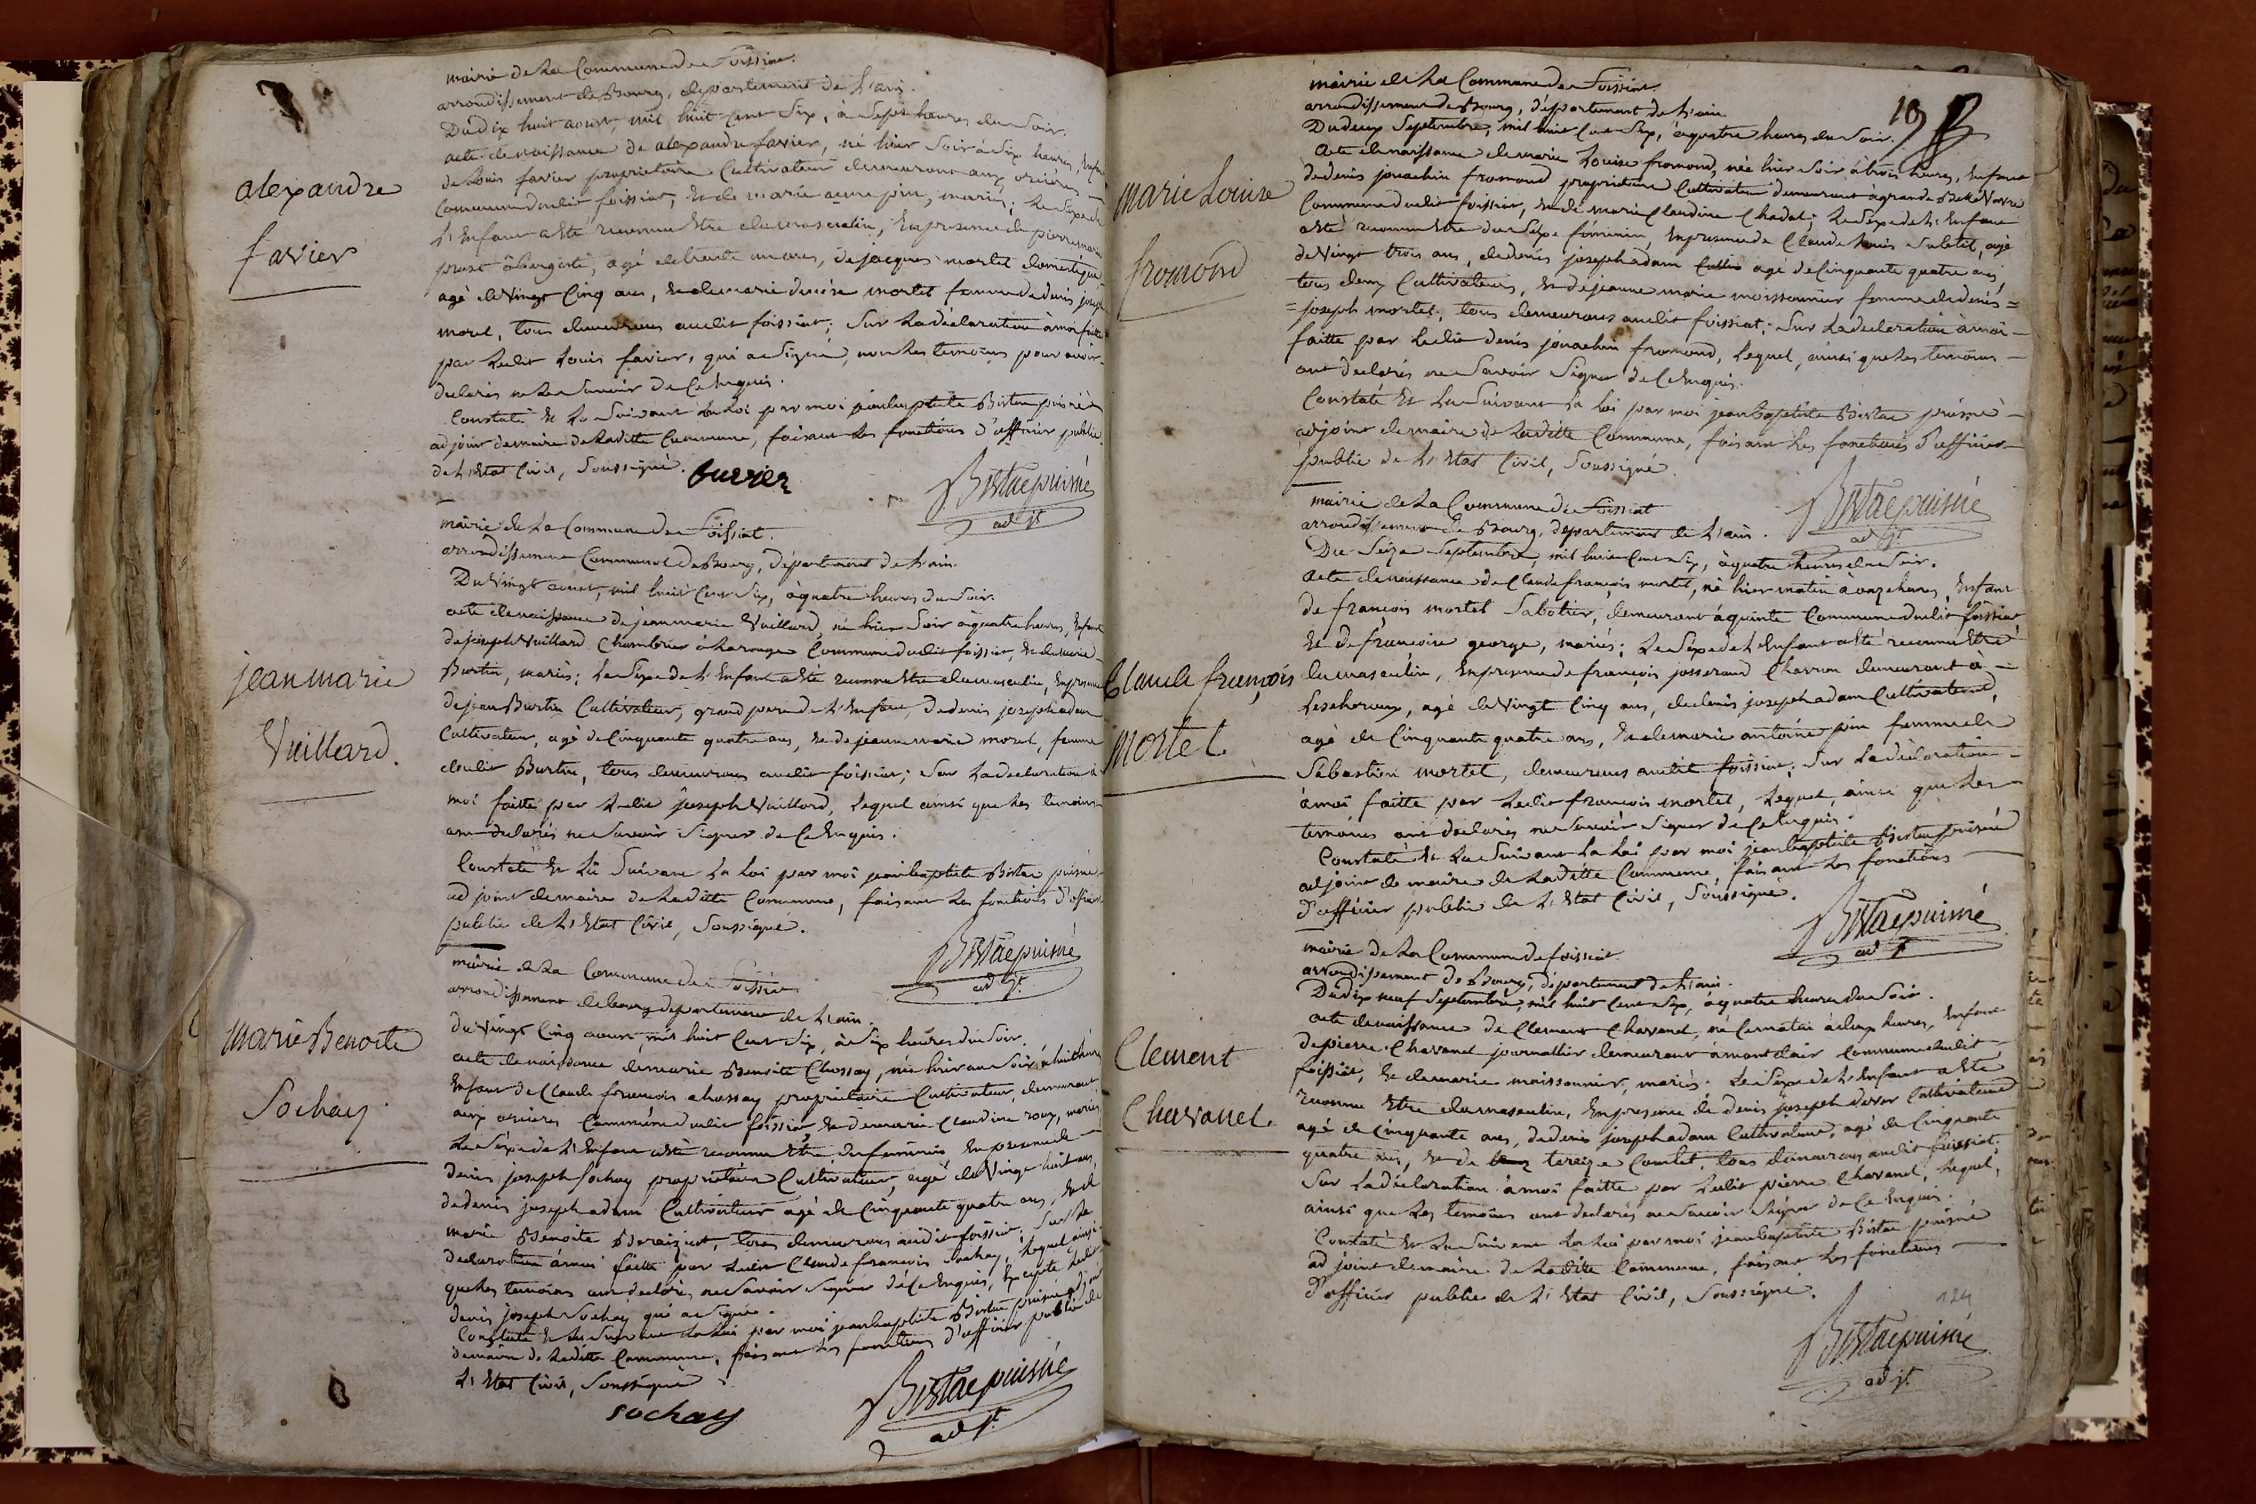 alexandre
favier
mairie de La Commune de Foissiat.
arrondissement de Bourg, departement de L'ain.
Du dix huit aoust, mil huit Cent Six, à Sept heures du Soir.
acte de naissance de alexandre favier, né hier Soir à Six heures, Enfant
de Louis favier proprietaire Cultivateur demeurant aux
Commune dudit foissiat, Et de marie anne pin, mariés; Le Sexe de
L'Enfant a Eté reconnu Etre du masculin, En presence de pierre marie
aubergiste, agé de trente un ans, de jacques mortel domestique
agé de Vingt Cinq ans, Et de marie mortel femme de denis joseph
morel, tous demeurans audit foissiat; Sur La déclaration à moi faitte
par Ledit Louis favier, qui a Signé, non Les temoins pour avoir
declarés ne Le Savoir de Ce Enquis.
Constaté Et Lu Suivant La Loi par moi jean baptiste Bistac puisné
adjoint de maire de Laditte Commune, faisant Les fonctions d'officier public
de L'Etat Civil, Soussigné.
favier
Bistac puisné
adjt.
jean marie
Vuillard.
mairie de La Commune de Foissiat.
arrondissement Communal de Bourg, département de L'ain.
Du Vingt aoust, mil huit Cent Six, à quatre heures du Soir.
acte de naissance de jean marie Vuillard, né hier Soir à quatre heures, Enfant
de joseph Vuillard Chambrier à Commune dudit foissiat, Et de marie
Burtin, mariés; Le Sexe de L'Enfant a Eté reconnu Etre du masculin, En presence
de jean Burtin Cultivateur, grand pere de L'Enfant, de denis joseph adam
Cultivateur, agé de Cinquante quatre ans, Et de jeanne marie morel, femme
dudit Burtin, tous demeurans audit foissiat; Sur La declaration à
moi faitte par Ledit joseph Vuillard, Lequel ainsi que Les temoins
ont declarés ne Savoir Signer de Ce Enquis.
Constaté Et Lu Suivant La Loi par moi jean baptiste Bistac puisné
adjoint de maire de Laditte Commune, faisant Les fonctions d'officier
public de L'Etat Civil, Soussigné.
Bistac puisné
adjt.
Marie Benoite
Sochay
mairie de La Commune de Foissiat
arrondissement de bourg departement de L'ain.
du Vingt Cinq aoust mil huit Cent Six, à Six heures du Soir.
acte de naissance de marie Benoite Chossay, née hier au Soir à huit heures
Enfant de Claude francois chossay proprietaire Cultivateur, demeurant
aux Commune dudit foissiat Et de marie Claudine roux, mariés
Le Sexe de L'Enfant a Eté reconnu Etre du feminin En presence de
denis joseph Sochay proprietaire Cultivateur, agé de Vingt huit ans,
de denis joseph adam Cultivateur agé de Cinquante quatre ans, Et de
marie Benoite tous demeurans audit foissiat, Sur La
declaration à moi faitte par Ledit Claude francois Sochay, Lequel ainsi
que Les temoins ont declarés ne Savoir Signer de Ce Enquis, Excepté Ledit
denis joseph Sochay qui a Signé.
Constaté Et Lu Suivant La Loi par moi jean baptiste Bistac puisné adjoint
de maire de Laditte Commune, faisant Les fonctions d'officier public de
L'Etat Civil, Soussigné.
sochay
Bistac puisné
adjt.
19
Marie Louise
fromond
mairie de La Commune de Foissiat.
arrondissement de Bourg, département de L'ain
Du deux Septembre, mil huit Cent Six, à quatre heures du Soir.
Acte de naissance de marie Louise fromond, née hier Soir à trois heures, Enfant
de denis joachin fromond proprietaire Cultivateur demeurant à grande
Commune dudit foissiat, Et de marie Claudine Chadal; Le Sexe de L'Enfant
a Eté reconnu Etre du Sexe féminin, En presence de Claude Louis Subtil, agé
de Vingt trois ans, de denis joseph adam agé de Cinquante quatre ans,
tous deux Cultivateurs, Et de jeanne marie moissonnier femme de denis =
= joseph mortel; tous demeurans audit foissiat; Sur La declaration à moi
faitte par Ledit denis joachin fromond, Lequel, ainsi que Les temoins
ont declarés ne Savoir Signer de Ce Enquis.
Constaté Et Lu Suivant La Loi par moi jean baptiste Bistac puisné
adjoint de maire de Laditte Commune, faisant Les fonctions d'officier
public de L'Etat Civil, Soussigné.
Bistac puisné
adjt.
Claude françois
Mortel
mairie de La Commune de Foissiat
arrondissement de Bourg, departement de L'ain.
Du Seize Septembre, mil huit Cent Six, à quatre heures du Soir.
Acte de naissance de Claude françois mortel, né hier matin à onze heures, Enfant
de francois mortel Sabotier, demeurant à quinte Commune dudit foissiat
Et de françoise george, mariés; Le Sexe de L'Enfant a Eté reconnu Etre
du masculin, En presence de françois josserand Charron demeurant à
Lescheroux, agé de Vingt Cinq ans, de denis joseph adam Cultivateur,
agé de Cinquante quatre ans, Et de marie antoine pin femme de
Sébastien mortel, demeurans audit foissiat; Sur La déclaration
à moi faitte par Ledit francois mortel, Lequel, ainsi que Les
temoins ont declarés ne Savoir Signer de Ce Enquis.
Constaté Et Lu Suivant La Loi par moi jean baptiste Bistac puisné
adjoint de maire de Laditte Commune, faisant Les fonctions
d'officier public de L'Etat Civil, Soussigné.
Bistac puisné
adjt
Clement
Chavanel.
mairie de La Commune de foissiat
arrondissement de Bourg, département de L'ain.
Du dix neuf Septembre, mil huit Cent Six, à quatre heures du Soir.
acte de naissance de Clement Chavanel, né Ce matin à deux heures, Enfant
de pierre Chavanel journallier demeurant à montclair Commune dudit
foissiat, Et de marie moissonnier, mariés. Le Sexe de L'Enfant a Eté
reconnu Etre du masculin, En presence de denis joseph Cultivateur
agé de Cinquante ans, de denis joseph adam Cultivateur, agé de Cinquante
quatre ans, Et de tereize tous demeurans audit foissiat;
Sur La déclaration à moi faitte par Ledit pierre Chavanel, Lequel,
ainsi que Les temoins ont declarés ne Savoir Signer de Ce Enquis.
Constaté Et Lu Suivant La Loi par moi jean baptiste Bistac puisné
adjoint de maire de Laditte Commune, faisant Les fonctions
d'officier public de L'Etat Civil, Soussigné.
124
Bistac puisné
adjt.